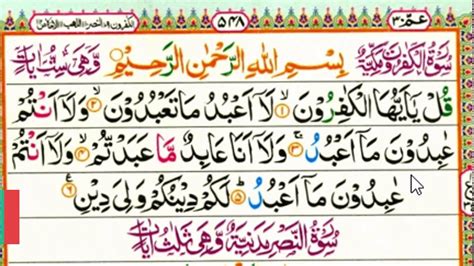 الكفرون ١٠٩ النصر ١١٠ اللهب ١١١ الاخلاص ١١٢ ٥٤٨ عم ٣٠
سُوْرَةُ الْكٰفِرُوْنَ مَكِّيَّةٌ بِسْمِ اللهِ الرَّحْمٰنِ الرَّحِيْمِ وَّهِىَ سِتُّ اٰيَاتٍ
قُلْ يٰٓاَيُّهَا الْكٰفِرُوْنَ ۙ﴿۱﴾ لَاۤ اَعْبُدُ مَا تَعْبُدُوْنَ ۙ﴿۲﴾ وَلَاۤ اَنْتُمْ
عٰبِدُوْنَ مَاۤ اَعْبُدُ ۚ﴿۳﴾ وَلَاۤ اَنَا عَابِدٌ مَّا عَبَدْتُّمْ ۙ﴿۴﴾ وَلَاۤ اَنْتُمْ
عٰبِدُوْنَ مَاۤ اَعْبُدُ ؕ﴿۵﴾ لَكُمْ دِيْنُكُمْ وَلِىَ دِيْنِ ﴿۶﴾ ع
سُوْرَةُ النَّصْرِ مَدَنِيَّةٌ وَّهِىَ ثَلٰثُ اٰيَاتٍ